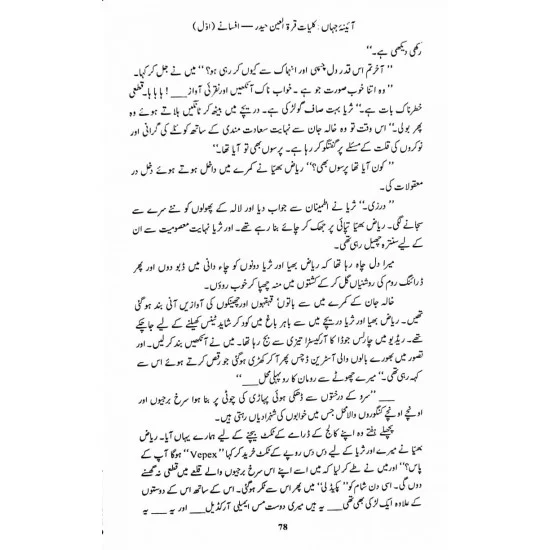 آئینۂ جہاں : کلیات قرۃ العین حیدر — افسانے (اوّل)
رکھی دیکھی ہے۔“
”آخر تم اس قدر دل چسپی اور انہماک سے کیوں کر رہی ہو؟“ میں نے جل کر کہا۔
”وہ اتنا خوب صورت جو ہے۔ خواب ناک آنکھیں اور نقرئی آواز ___ ! ہا ہا ہا۔ قطعی
خطرناک بات ہے۔“ ثریا بہت صاف گو لڑکی ہے۔ دریچے میں بیٹھ کر ٹانگیں ہلاتے ہوئے وہ
پھر بولی۔ ”اس وقت تو وہ خالہ جان سے نہایت سعادت مندی کے ساتھ کوئلے کی گرانی اور
نوکروں کی قلت کے مسئلے پر گفتگو کر رہا ہے۔ پرسوں بھی تو آیا تھا۔“
”کون آیا تھا پرسوں بھی؟“ ریاض بھیّا نے کمرے میں داخل ہوتے ہوئے دخل در
معقولات کی۔
”درزی۔“ ثریا نے اطمینان سے جواب دیا اور لالہ کے پھولوں کو نئے سرے سے
سجانے لگی۔ ریاض بھیّا تپائی پر جھک کر چائے بنا رہے تھے۔ اور ثریا نہایت معصومیت سے ان
کے لیے سنترہ چھیل رہی تھی۔
میرا دل چاہ رہا تھا کہ ریاض بھیا اور ثریا دونوں کو چاء دانی میں ڈبو دوں اور پھر
ڈرائنگ روم کی روشنیاں گل کر کے کشنوں میں منہ چھپا کر خوب روؤں۔
خالہ جان کے کمرے میں سے باتوں قہقہوں اور چھینکوں کی آوازیں آنی بند ہو گئی
تھیں۔ ریاض بھیا اور ثریا دریچے میں سے باہر باغ میں کود کر شاید ٹینس کھیلنے کے لیے جا چکے
تھے۔ ریڈیو میں چارلس جوڈا کا آرکیسٹرا تیزی سے بج رہا تھا۔ میں نے آنکھیں بند کر لیں۔ اور
تصور میں بھورے بالوں والی آسٹرین ڈچس پھر آ کر کھڑی ہو گئی جو رقص کرتے ہوئے اس سے
کہہ رہی تھی۔ ”میرے چھوٹے سے رومان کا روپہلی محل ___“
”سرو کے درختوں سے ڈھکی ہوئی پہاڑی کی چوٹی پر بنا ہوا سرخ برجیوں اور
اونچے اونچے کنگوروں والا محل جس میں خوابوں کی شہزادیاں رہتی ہیں۔
پچھلے ہفتے وہ اپنے کالج کے ڈرامے کے ٹکٹ بیچنے کے لیے ہمارے یہاں آیا۔ ریاض
بھیّا نے میرے اور ثریا کے لیے دس دس روپے کے ٹکٹ خرید کر کہا ”Vepex ہو گا آپ کے
پاس؟“ اور میں نے طے کر لیا کہ میں اسے اپنے اس سرخ برجیوں والے قلعے میں قطعی نہ گھسنے
دوں گی۔ اسی دن شام کو میں پھر اس سے ٹکر ہو گئی۔ اس کے ساتھ اس کے دوستوں
کے علاوہ ایک لڑکی بھی تھی ___ یہ ہیں میری دوست مس ایمیلی آرکڈیل ___ اور یہ ___ یہ
78